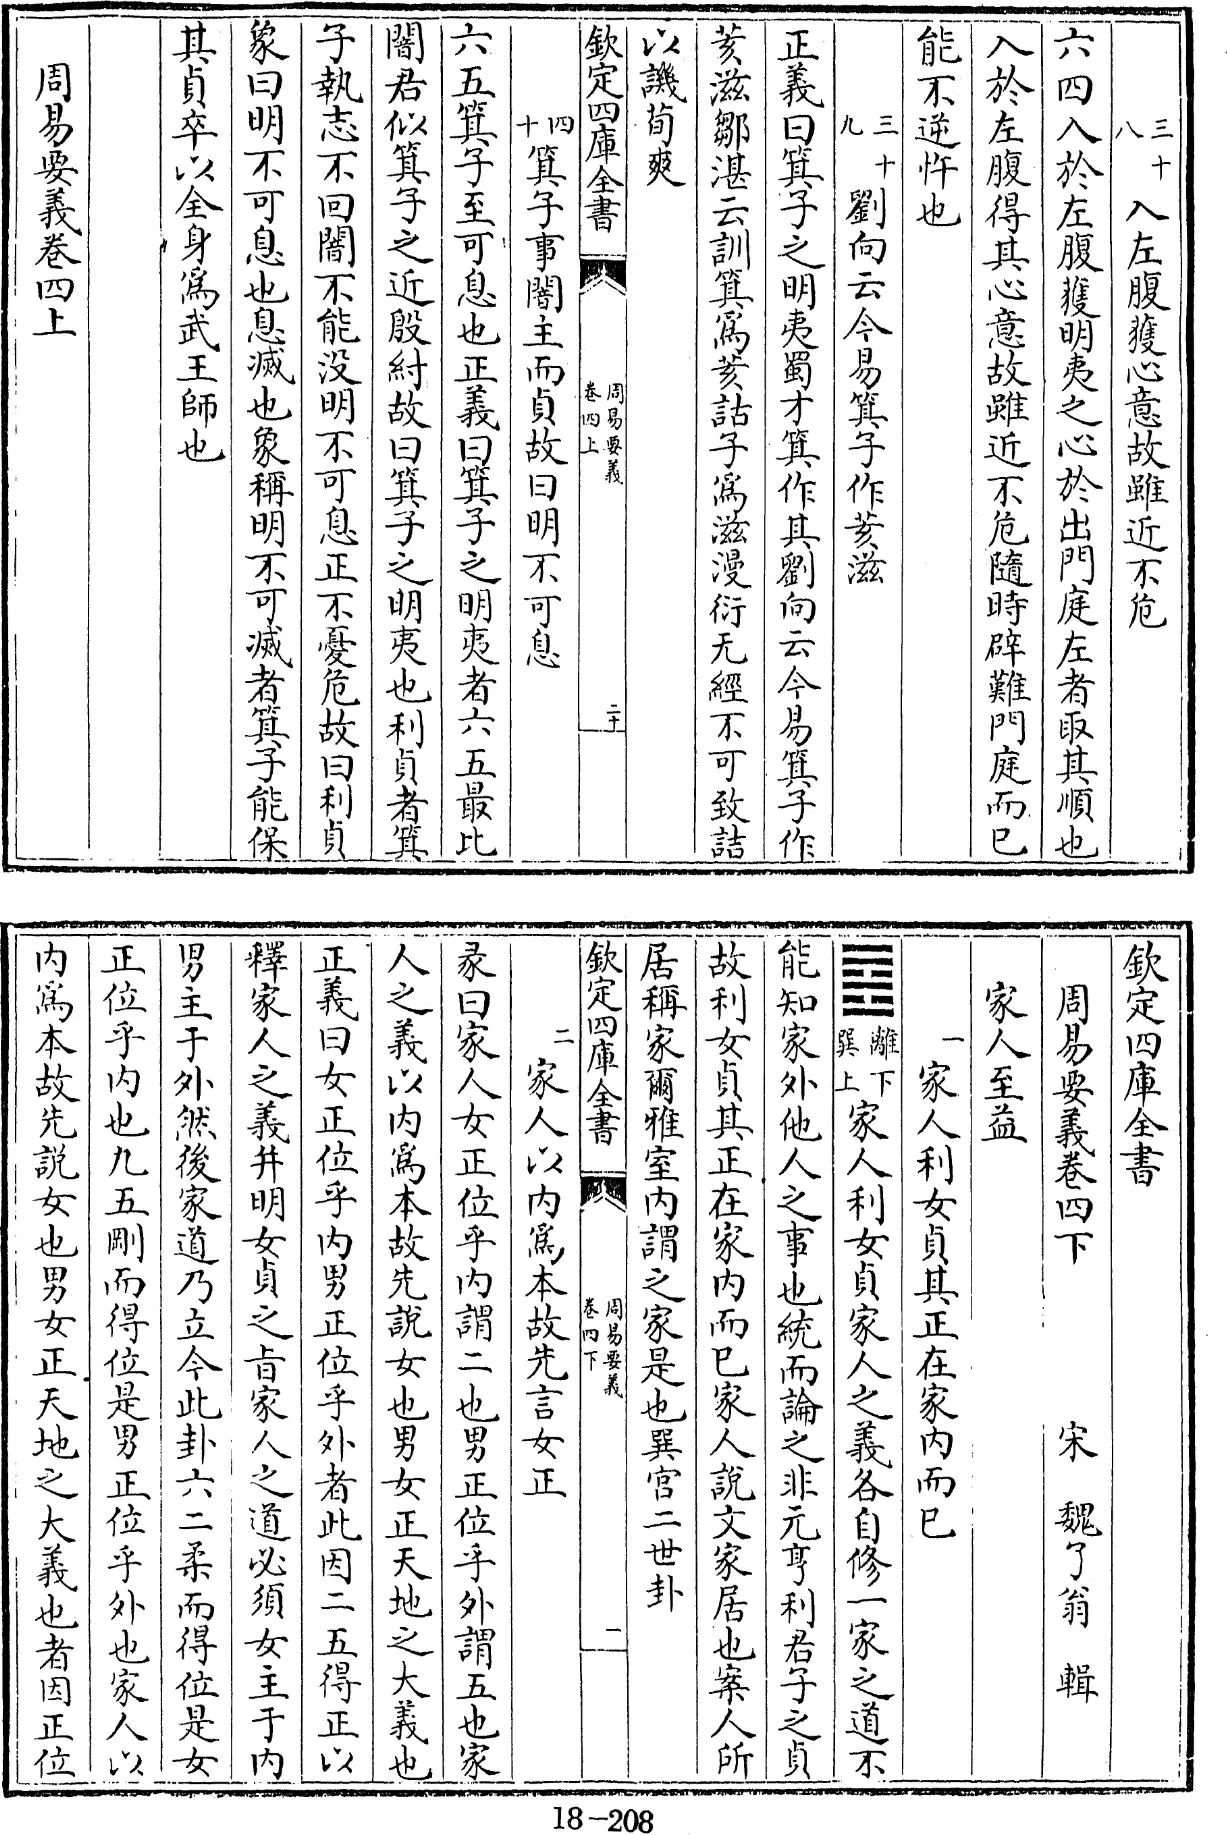 三十八入左腹獲心意故雖近不危
六四入於左腹獲明夷之心於出門庭左者取其順也
入於左腹得其心意故雖近不危隨時辟難門庭而已
能不逆忤也
三十九劉向云今易箕子作荄滋
正義曰箕子之明夷蜀才箕作其劉向云今易箕子作
荄滋鄒湛云訓箕爲荄詁子爲滋漫衍无經不可致詰
以譏荀爽
欽定四庫全書
周易要義
卷四上
二十
四十箕子事闇主而貞故曰明不可息
六五箕子至可息也正義曰箕子之明夷者六五最比
闇君似箕子之近殷紂故曰箕子之明夷也利貞者箕
子執志不回闇不能没明不可息正不憂危故曰利貞
象曰明不可息也息滅也象稱明不可滅者箕子能保
其貞卒以全身爲武王師也
周易要義卷四上
欽定四庫全書
周易要義卷四下 宋 魏了翁 輯
家人至益
一家人利女貞其正在家内而已
䷤離下巽上家人利女貞家人之義各自修一家之道不
能知家外他人之事也統而論之非元亨利君子之貞
故利女貞其正在家内而已家人說文家居也案人所
居稱家爾雅室内謂之家是也巽宫二世卦
欽定四庫全書
周易要義
卷四下
一
二家人以内爲本故先言女正
彖曰家人女正位乎内謂二也男正位乎外謂五也家
人之義以内爲本故先說女也男女正天地之大義也
正義曰女正位乎内男正位乎外者此因二五得正以
釋家人之義并明女貞之㫖家人之道必須女主于内
男主于外然後家道乃立今此卦六二柔而得位是女
正位乎内也九五剛而得位是男正位乎外也家人以
内爲本故先說女也男女正天地之大義也者因正位
18-208